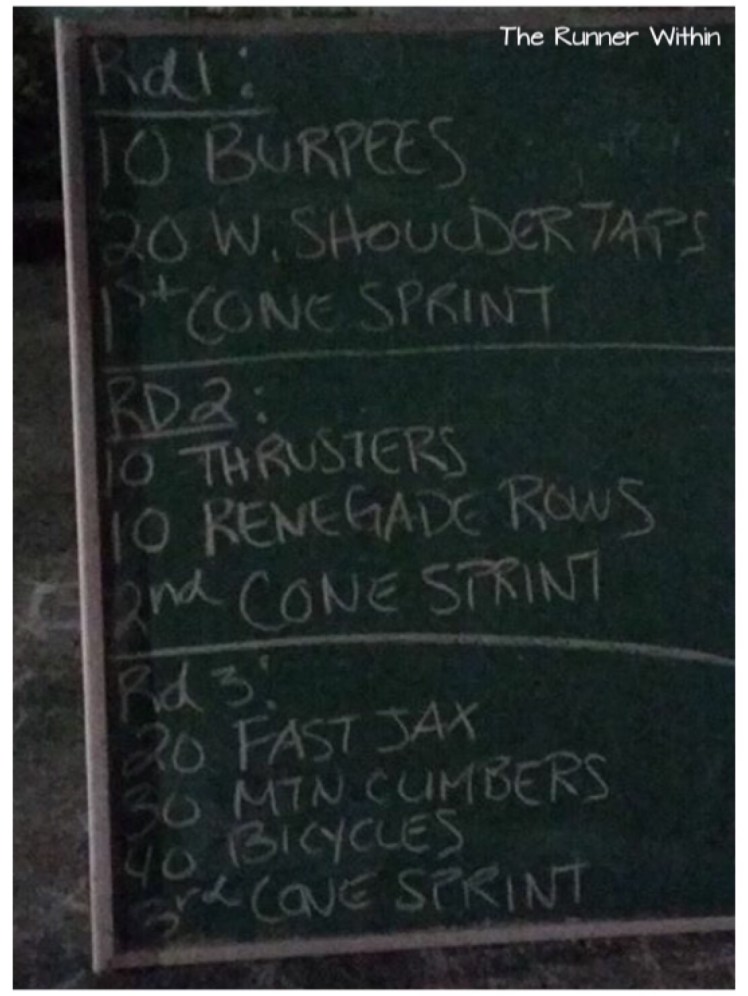 The Runner Within
Rd1:
10 BURPEES
20 W. SHOULDER TAPS
1st CONE SPRINT
RD2:
10 THRUSTERS
10 RENEGADE ROWS
2nd CONE SPRINT
Rd 3:
20 FAST JAX
30 MTN CLIMBERS
40 BICYCLES
3rd CONE SPRINT